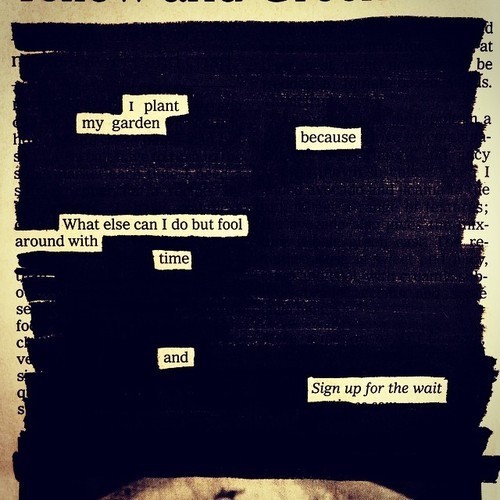 I plant
my garden
because
What else can I do but fool
around with
time
and
Sign up for the wait